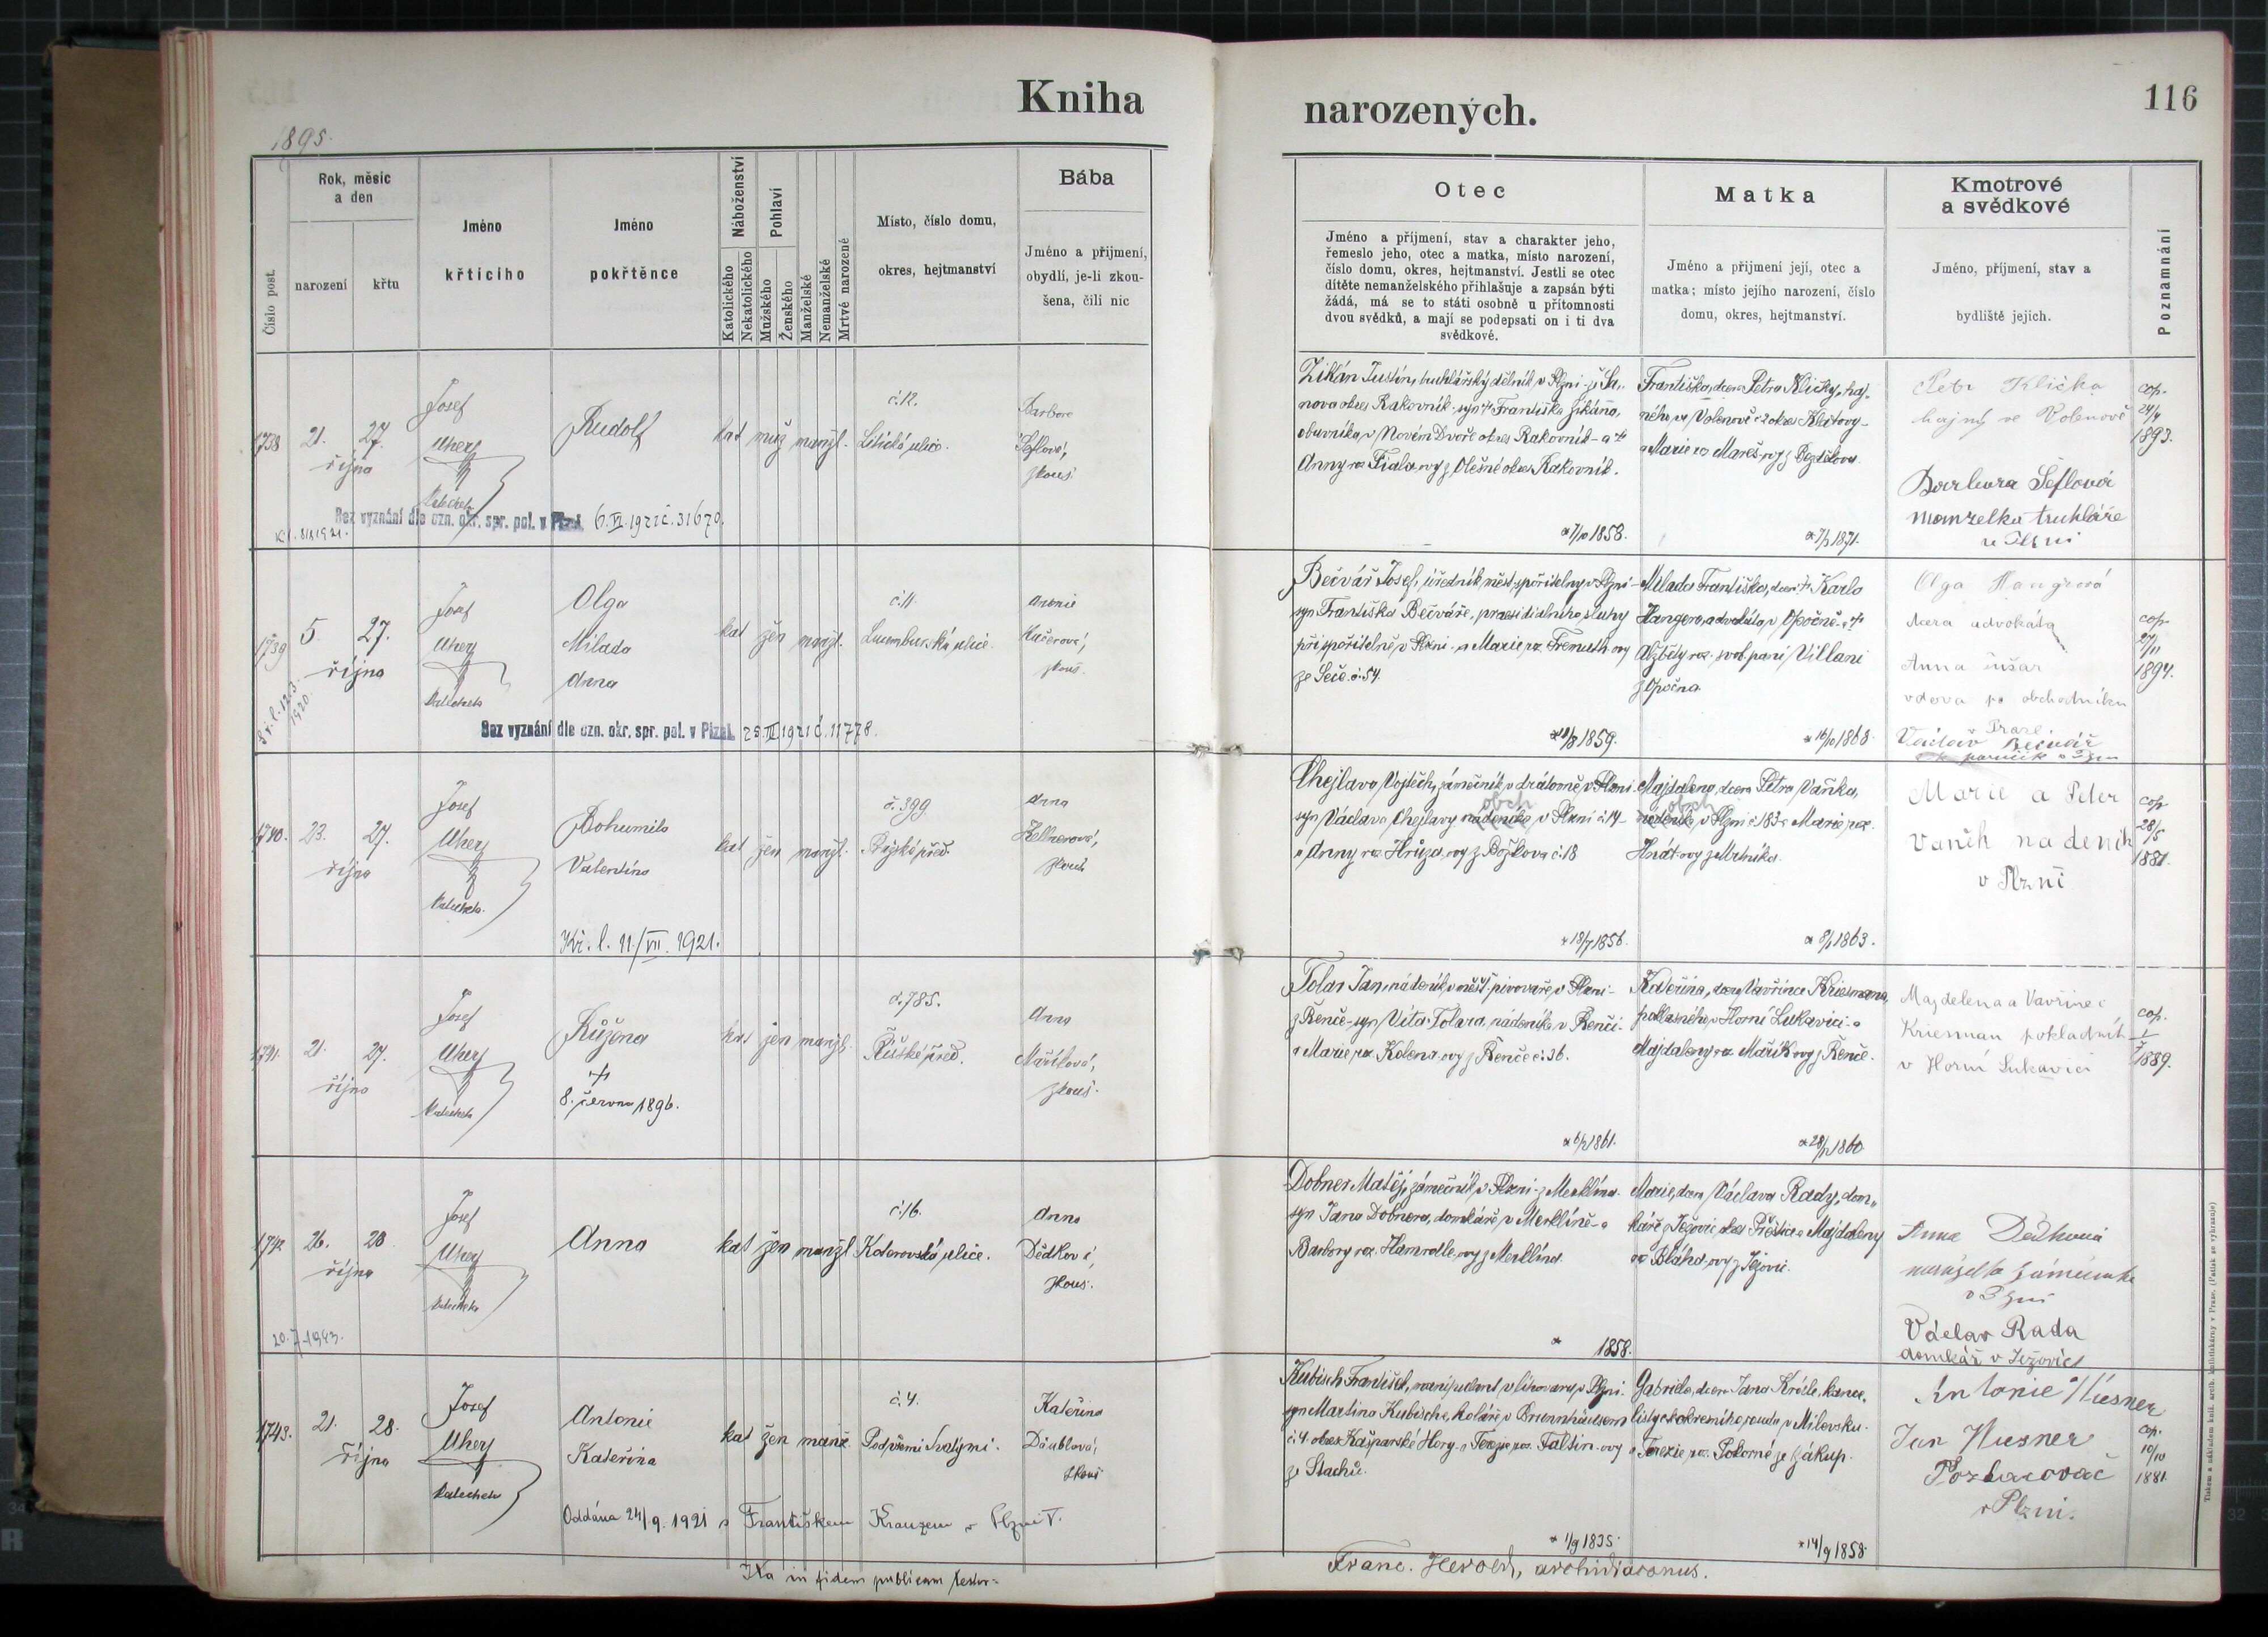 Kniha
narozených.
116
1895.
Číslo post.
Rok, měsíc
a den
narození
křtu
Jméno
křtícího
Jméno
pokřtěnce
Náboženství
Katolického
Nekatolického
Pohlaví
Mužského
Ženského
Manželské
Nemanželské
Mrtvě narozené
Místo, číslo domu,
okres, hejtmanství
Bába
Jméno a přijmení,
obydlí, je-li zkou-
šena, čili nic
Otec
Jméno a příjmení, stav a charakter jeho,
řemeslo jeho, otec a matka, místo narození,
číslo domu, okres, hejtmanství. Jestli se otec
dítěte nemanželského přihlašuje a zapsán býti
žádá, má se to státi osobně u přítomnosti
dvou svědků, a mají se podepsati on i ti dva
svědkové.
Matka
Jméno a přijmení její, otec a
matka; místo jejího narození, číslo
domu, okres, hejtmanství.
Kmotrové
a svědkové
Jméno, příjmení, stav a
bydliště jejich.
Poznamnání
1738
21.
27.
října
Josef
Uhery
Rudolf
kat muž manžl.
č. 12.
Litická ulice.
Barbora
Šeflová,
zkouš.
Zikán Justin, truhlářský dělník v Plzni - ze Se-
nova okres Rakovník - syn † Františka Zikána,
obuvníka v Novém Dvoře okres Rakovník - a †
Anny roz. Fiala rov. z Olešné okres Rakovník.
* 7/10 1858.
Františka, dcera Petra Kličky, haj-
ného ve Volenově č 2 okres Klatovy -
a Marie roz. Mareš rov. z
1871.
Petr Klička
hajný ve Volenově
Barbora Šeflová
manželka truhláře
v Plzni
cop.
24/4
1893.
Bez vyznání dle ozn. okr. spr. pol. v Plzni. 6. VI. 1921 č. 31679.
1739
5.
27.
října
Josef
Uhery
Olga
Milada
Anna
kat žen manžl.
č. 11.
Lucemburská ulice.
Antonie
Kučerová,
zkouš.
Bečvář Josef, úředník měst. spořitelny v Plzni -
syn Františka Bečváře, praesidialního sluhy
při spořitelně v Plzni - a Marie roz. Fremuth rov.
ze Seče č. 54.
1859.
Milada Františka, dcera † Karla
Hangera, advokáta v Opočně - a †
Alžběty roz. svob. paní Villani
z Opočna.
* 16/10 1868.
Olga Hangrová
dcera advokáta
Anna
vdova po obchodníku
Praze
Václav Bečvář
cop.
27/11
1894.
Kř. l. 12. 3.
1920.
Bez vyznání dle ozn. okr. spr. pol. v Plzni. 25. II. 1921 č. 11778.
1740.
23.
27.
října
Josef
Uhery
Bohumila
Valentina
kat žen manžl.
č. 399.
Pražské před.
Anna
Kellnerová,
zkouš.
Chejlava Vojtěch, zámečník v drátovně v Plzni -
obch
syn Václava Chejlavy nádeníka v Plzni č. 14 -
a Anny roz. Hrůza, rov. z Božkova č. 18
* 18/7 1856.
Majdalena, dcera Petra Vaňka,
obch
nádeníka v Plzni č. 183 a Marie roz.
Hnát rov. z Mělníka.
1863.
Marie a Peter
Vaněk nadeník
v Plzni
cop.
28/5
1881.
Kř. l. 11./VII. 1921.
1741.
21.
27.
října
Josef
Uhery
Růžena
†
8. června 1896.
kat žen manžl.
č. 785.
Říšské před.
Anna
Maříková,
zkouš.
Tolar Jan, nádeník v měšť. pivovaře v Plzni -
z Řenče - syn Víta Tolara, nádeníka v Řenči -
a Marie roz. Kolena rov. z Řenče č. 36.
1861.
Kateřina, dcera Vavřince Kriesmana,
poklasného v Horní Lukavici - a
Majdaleny roz. Mařík rov. z Řenče.
1860
Majdelena a Vavřinec
Kriesman pokladník
v Horní Lukavici
cop.
1889.
1742
26.
28
října
Josef
Uhery
Anna
kat žen manžl
č. 16.
Koterovská ulice.
Anna
Dědková,
zkouš.
20. 7. 1943.
Dobner Matěj, zámečník v Plzni - z Merklína -
syn Jana Dobnera, domkáře v Merklíně - a
Barbory roz. Hamrdle, rov. z Merklína.
* 1858.
Marie, dcera Václava Rady, dom-
káře z Ježovic okres Přeštice a Majdaleny
roz. Bláha rov. z Ježovic.
Anna Dědková
manželka zámečníka
v Plzni
Václav Rada
domkář v Ježovicích
1743.
21.
28.
října
Josef
Uhery
Antonie
Kateřina
kat žen manž.
č. 4.
Pod všemi Svatými.
Kateřina
Däublová,
zkouš
Kubisch František, manipulant v lihovaru v Plzni -
syn Martina Kubische, koláře v Brunnhäusern
č. 4 okres Kašparské Hory - a Terezie roz. Faltin - rov.
ze Stachů.
* 1/9 1835.
Gabriela, dcera Jana Krále, kance-
listy c. k. okresního soudu v Milevsku -
a Terezie roz. Pokorné ze Zákup.
* 14/9 1858.
Antonie Husner
Jan Husner
Pozlacovač
v Plzni.
cop.
10/10
1881
Oddána 24/9. 1921 s Františkem Krauzem v Plzni V.
Ita in fidem publicam testor:
Franc. Herold, archidiaconus.